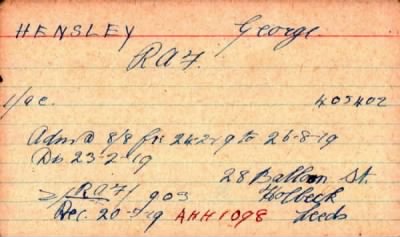 HENSLEY George
RAF.
1/ac. 405402
Adm@ 8/8 fr 24-2-19 to 26-8-19
Do 23-2-19
28 Balloon St.
RAF/903 Holbeck
Rec. 20-9-19 AHH1098 Leeds